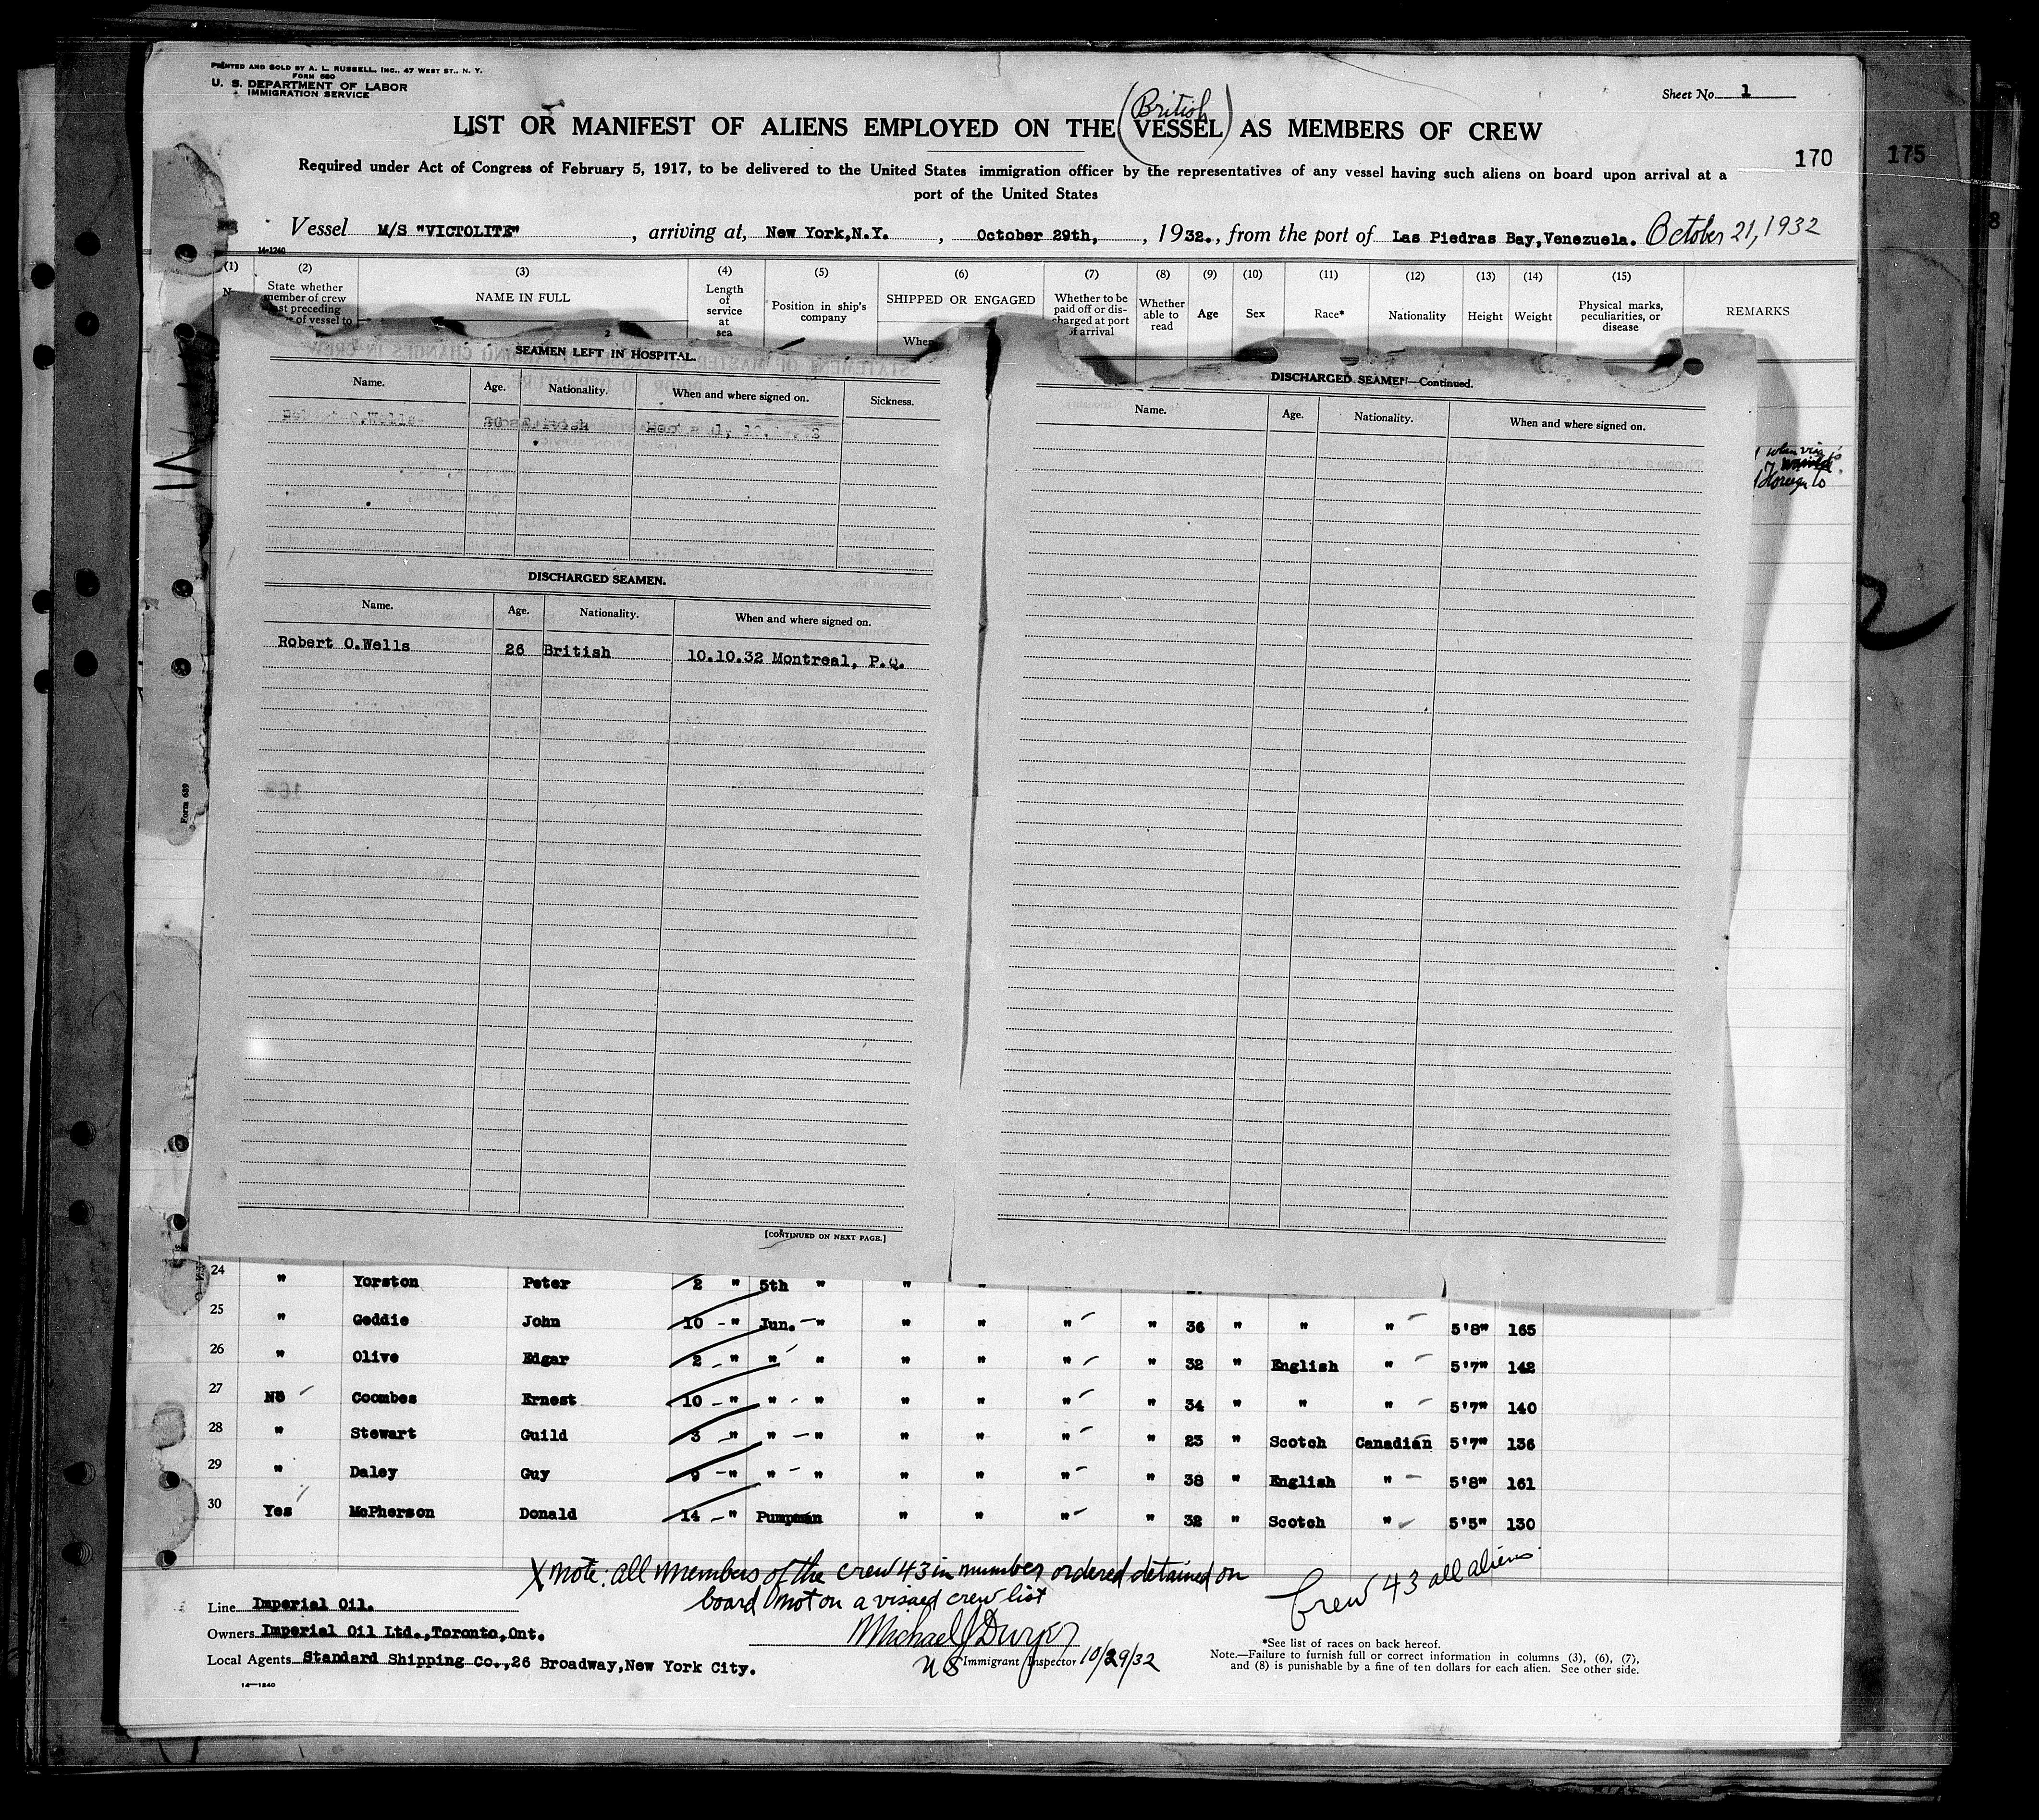 PRINTED AND SOLD BY A. L. RUSSELL, INC., 47 WEST ST., N. Y.
FORM 680
U. S. DEPARTMENT OF LABOR
IMMIGRATION SERVICE
Sheet No. 1
(British)
LIST OR MANIFEST OF ALIENS EMPLOYED ON THE VESSEL AS MEMBERS OF CREW
170 175
Required under Act of Congress of February 5, 1917, to be delivered to the United States immigration officer by the representatives of any vessel having such aliens on board upon arrival at a
port of the United States
Vessel M/S "VICTOLITE", arriving at, New York,N.Y., October 29th, , 1932., from the port of Las Piedras Bay,Venezuela. October 21, 1932
14-1240
(1) (2) (3) (4) (5) (6) (7) (8) (9) (10) (11) (12) (13) (14) (15)
State whether member of crew
NAME IN FULL
Length of service at sea
Position in ship's company
SHIPPED OR ENGAGED
When
Whether to be paid off or discharged at port of arrival
Whether able to read
Age
Sex
Race*
Nationality
Height
Weight
Physical marks, peculiarities, or disease
REMARKS
SEAMEN LEFT IN HOSPITAL.
Name. Age. Nationality. When and where signed on. Sickness.
DISCHARGED SEAMEN.
Name. Age. Nationality. When and where signed on.
Robert O.Wells 26 British 10.10.32 Montreal, P.Q.
Form 689
[CONTINUED ON NEXT PAGE.]
DISCHARGED SEAMEN—Continued.
Name. Age. Nationality. When and where signed on.
24 " Yorston Peter 2 " 5th " " "
25 " Geddie John 10 - " Jun. - " " " " " 36 " " " 5'8" 165
26 " Olive Edgar 2 - " " " " " " " 32 " English " 5'7" 142
27 No Coombes Ernest 10 - " " - " " " " " 34 " " " 5'7" 140
28 " Stewart Guild 3 - " " - " " " " " 23 " Scotch Canadian 5'7" 136
29 " Daley Guy 9 - " " - " " " " " 38 " English " 5'8" 161
30 Yes McPherson Donald 14 - " Pumpman " " " " 32 " Scotch " 5'5" 130
X note: all members of the crew 43 in number ordered detained on
board not on a visaed crew list
Crew 43 all aliens
Line Imperial Oil.
Owners Imperial Oil Ltd.,Toronto,Ont.
Local Agents Standard Shipping Co.,26 Broadway,New York City.
Michael J Dwyer
US Immigrant Inspector 10/29/32
*See list of races on back hereof.
Note.—Failure to furnish full or correct information in columns (3), (6), (7),
and (8) is punishable by a fine of ten dollars for each alien. See other side.
14—1240